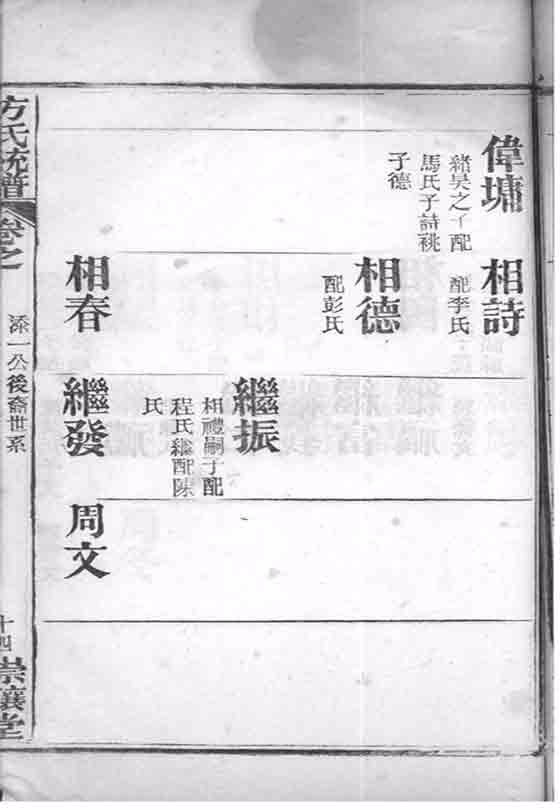 偉墉
緒昊之子配
馬氏子詩祧
子德
相詩
配李氏
相德
配彭氏
繼振
相禮嗣子配
程氏繼配陳
氏
相春
繼發
周文
方氏統譜
卷之
添一公後裔世系
十四
崇讓堂